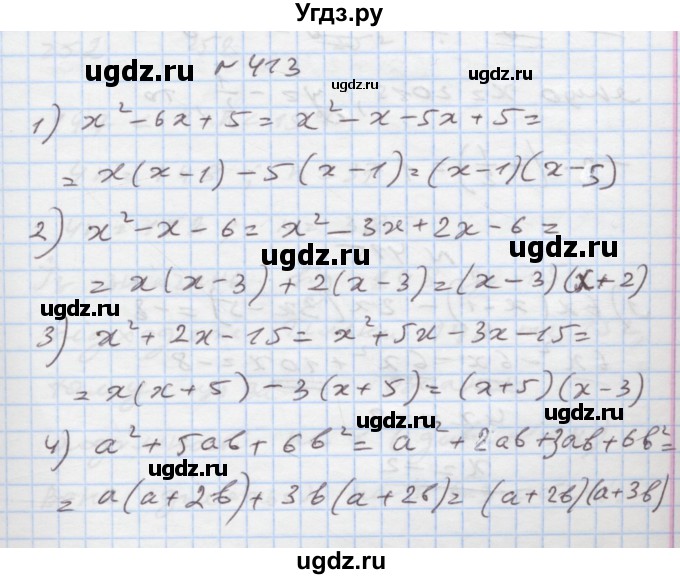 Угдз.ру
№ 413
1) x² - 6x + 5 = x² - x - 5x + 5 =
= x(x - 1) - 5(x - 1) = (x - 1)(x - 5)
2) x² - x - 6 = x² - 3x + 2x - 6 =
= x(x - 3) + 2(x - 3) = (x - 3)(x + 2)
3) x² + 2x - 15 = x² + 5x - 3x - 15 =
= x(x + 5) - 3(x + 5) = (x + 5)(x - 3)
4) a² + 5ab + 6b² = a² + 2ab + 3ab + 6b² =
= a(a + 2b) + 3b(a + 2b) = (a + 2b)(a + 3b)
ugdz.ru
ugdz.ru
ugdz.ru
ugdz.ru
ugdz.ru
ugdz.ru
ugdz.ru
ugdz.ru
ugdz.ru
ugdz.ru